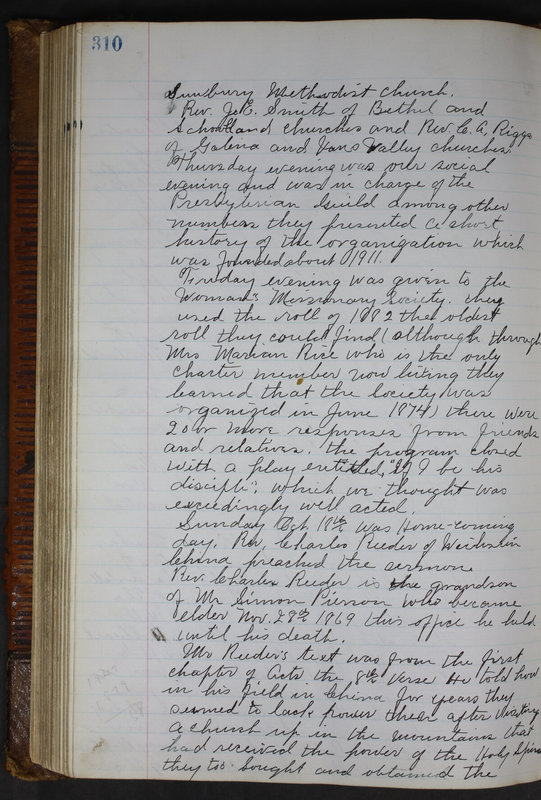 310
Sunbury Methodist Church.
Rev. J.E. Smith of Bethel and
and churches and Rev. C. A. Riggs
of Galena and Vans Valley churches.
Thursday evening was our social
evening and was in charge of the
Presbyterian Guild among other
numbers they presented a short
history of the organization which
was founded about 1911.
Friday evening was given to the
Woman's Missionary Society. They
used the roll of 1882 the oldest
roll they could find (although through
Mrs Marian Rice who is the only
charter member now living they
learned that the Society was
organized in June 1874) there were
20 or more responses from friends
and relatives. The program closed
with a play entitled, "If I be his
disciple", which we thought was
exceedingly well acted.
Sunday Oct 18th was Home-coming
day. Rev. Charles Reeder of Weihsin
China preached the sermon
Rev. Charles Reeder is the grandson
of Mr Simon Pierson who became
elder Nov. 28th 1869 this office he held
until his death.
Mr Reeder's text was from the first
chapter of Acts the 8th verse He told how
in his field in China for years they
seemed to lack power then after visiting
a church up in the mountains that
had received the power of the Holy Spirit
they too sought and obtained the